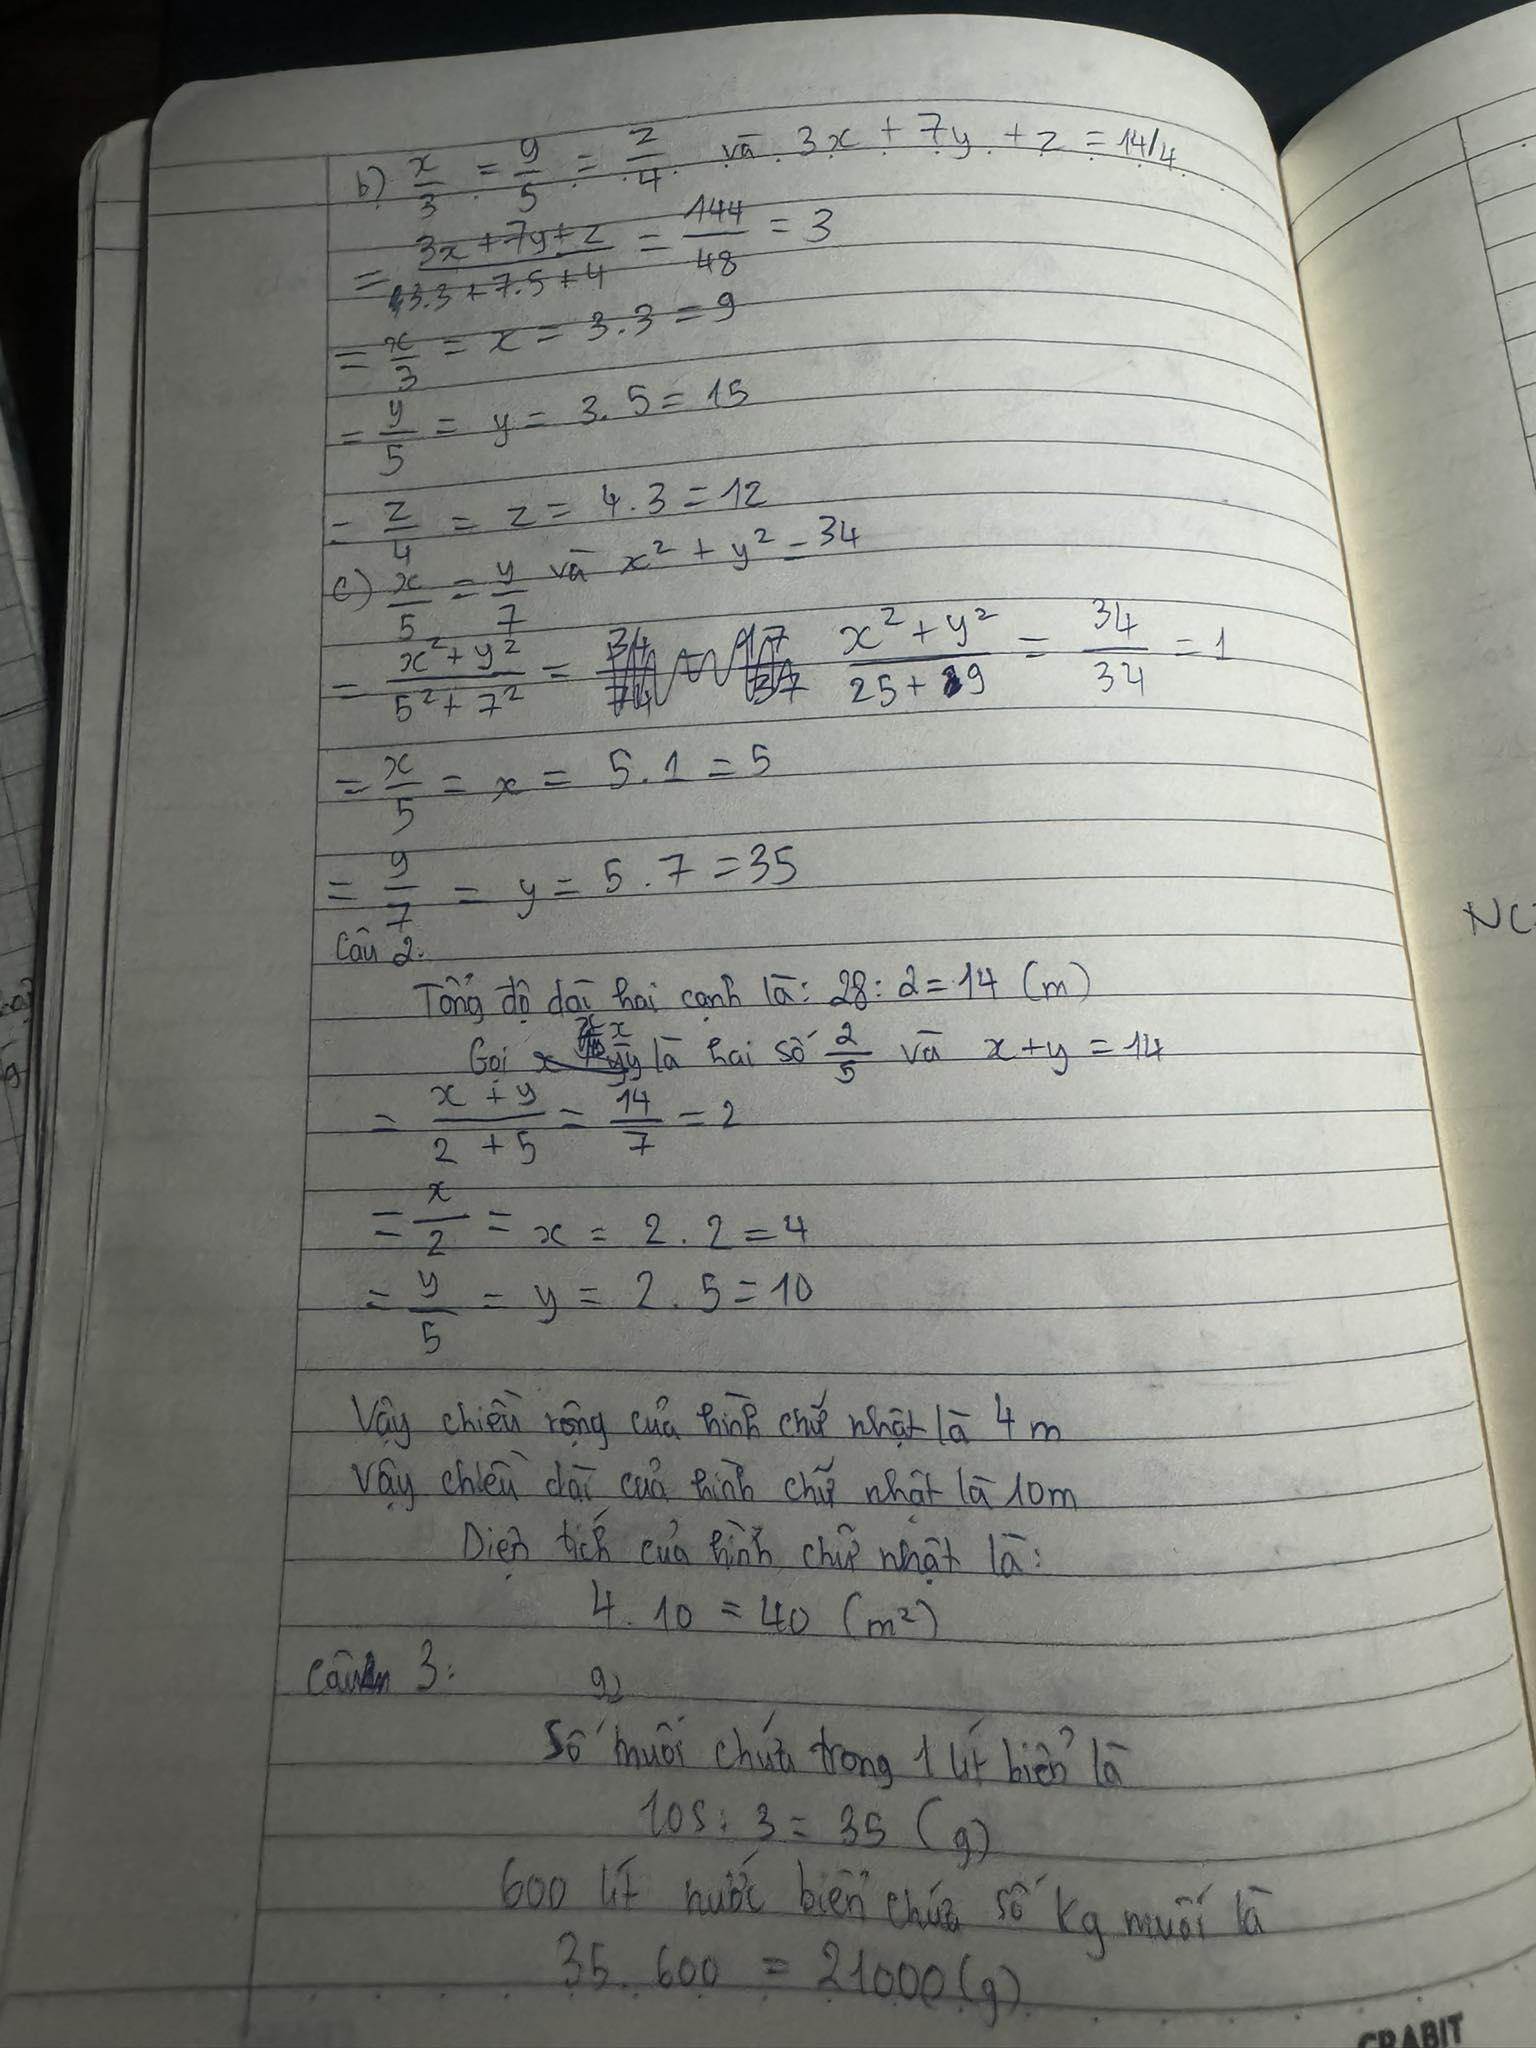 b) x/3 = y/5 = z/4 và 3x + 7y + z = 144
= 3x + 7y + z / 3.3 + 7.5 + 4 = 144/48 = 3
= x/3 = x = 3.3 = 9
= y/5 = y = 3.5 = 15
= z/4 = z = 4.3 = 12
c) x/5 = y/7 và x² + y² = 34
= x² + y² / 5² + 7² = x² + y² / 25 + 9 = 34/34 = 1
= x/5 = x = 5.1 = 5
= y/7 = y = 5.7 = 35
Câu 2:
Tổng độ dài hai cạnh là: 28 : 2 = 14 (m)
Gọi x/y là hai số 2/5 và x + y = 14
= x + y / 2 + 5 = 14/7 = 2
= x/2 = x = 2.2 = 4
= y/5 = y = 2.5 = 10
Vậy chiều rộng của hình chữ nhật là 4 m
Vậy chiều dài của hình chữ nhật là 10m
Diện tích của hình chữ nhật là:
4.10 = 40 (m²)
Câu 3:
Số muối chứa trong 1 lít biển là
105 : 3 = 35 (g)
600 lít nước biển chứa số kg muối là
35.600 = 21000 (g)
GRABIT